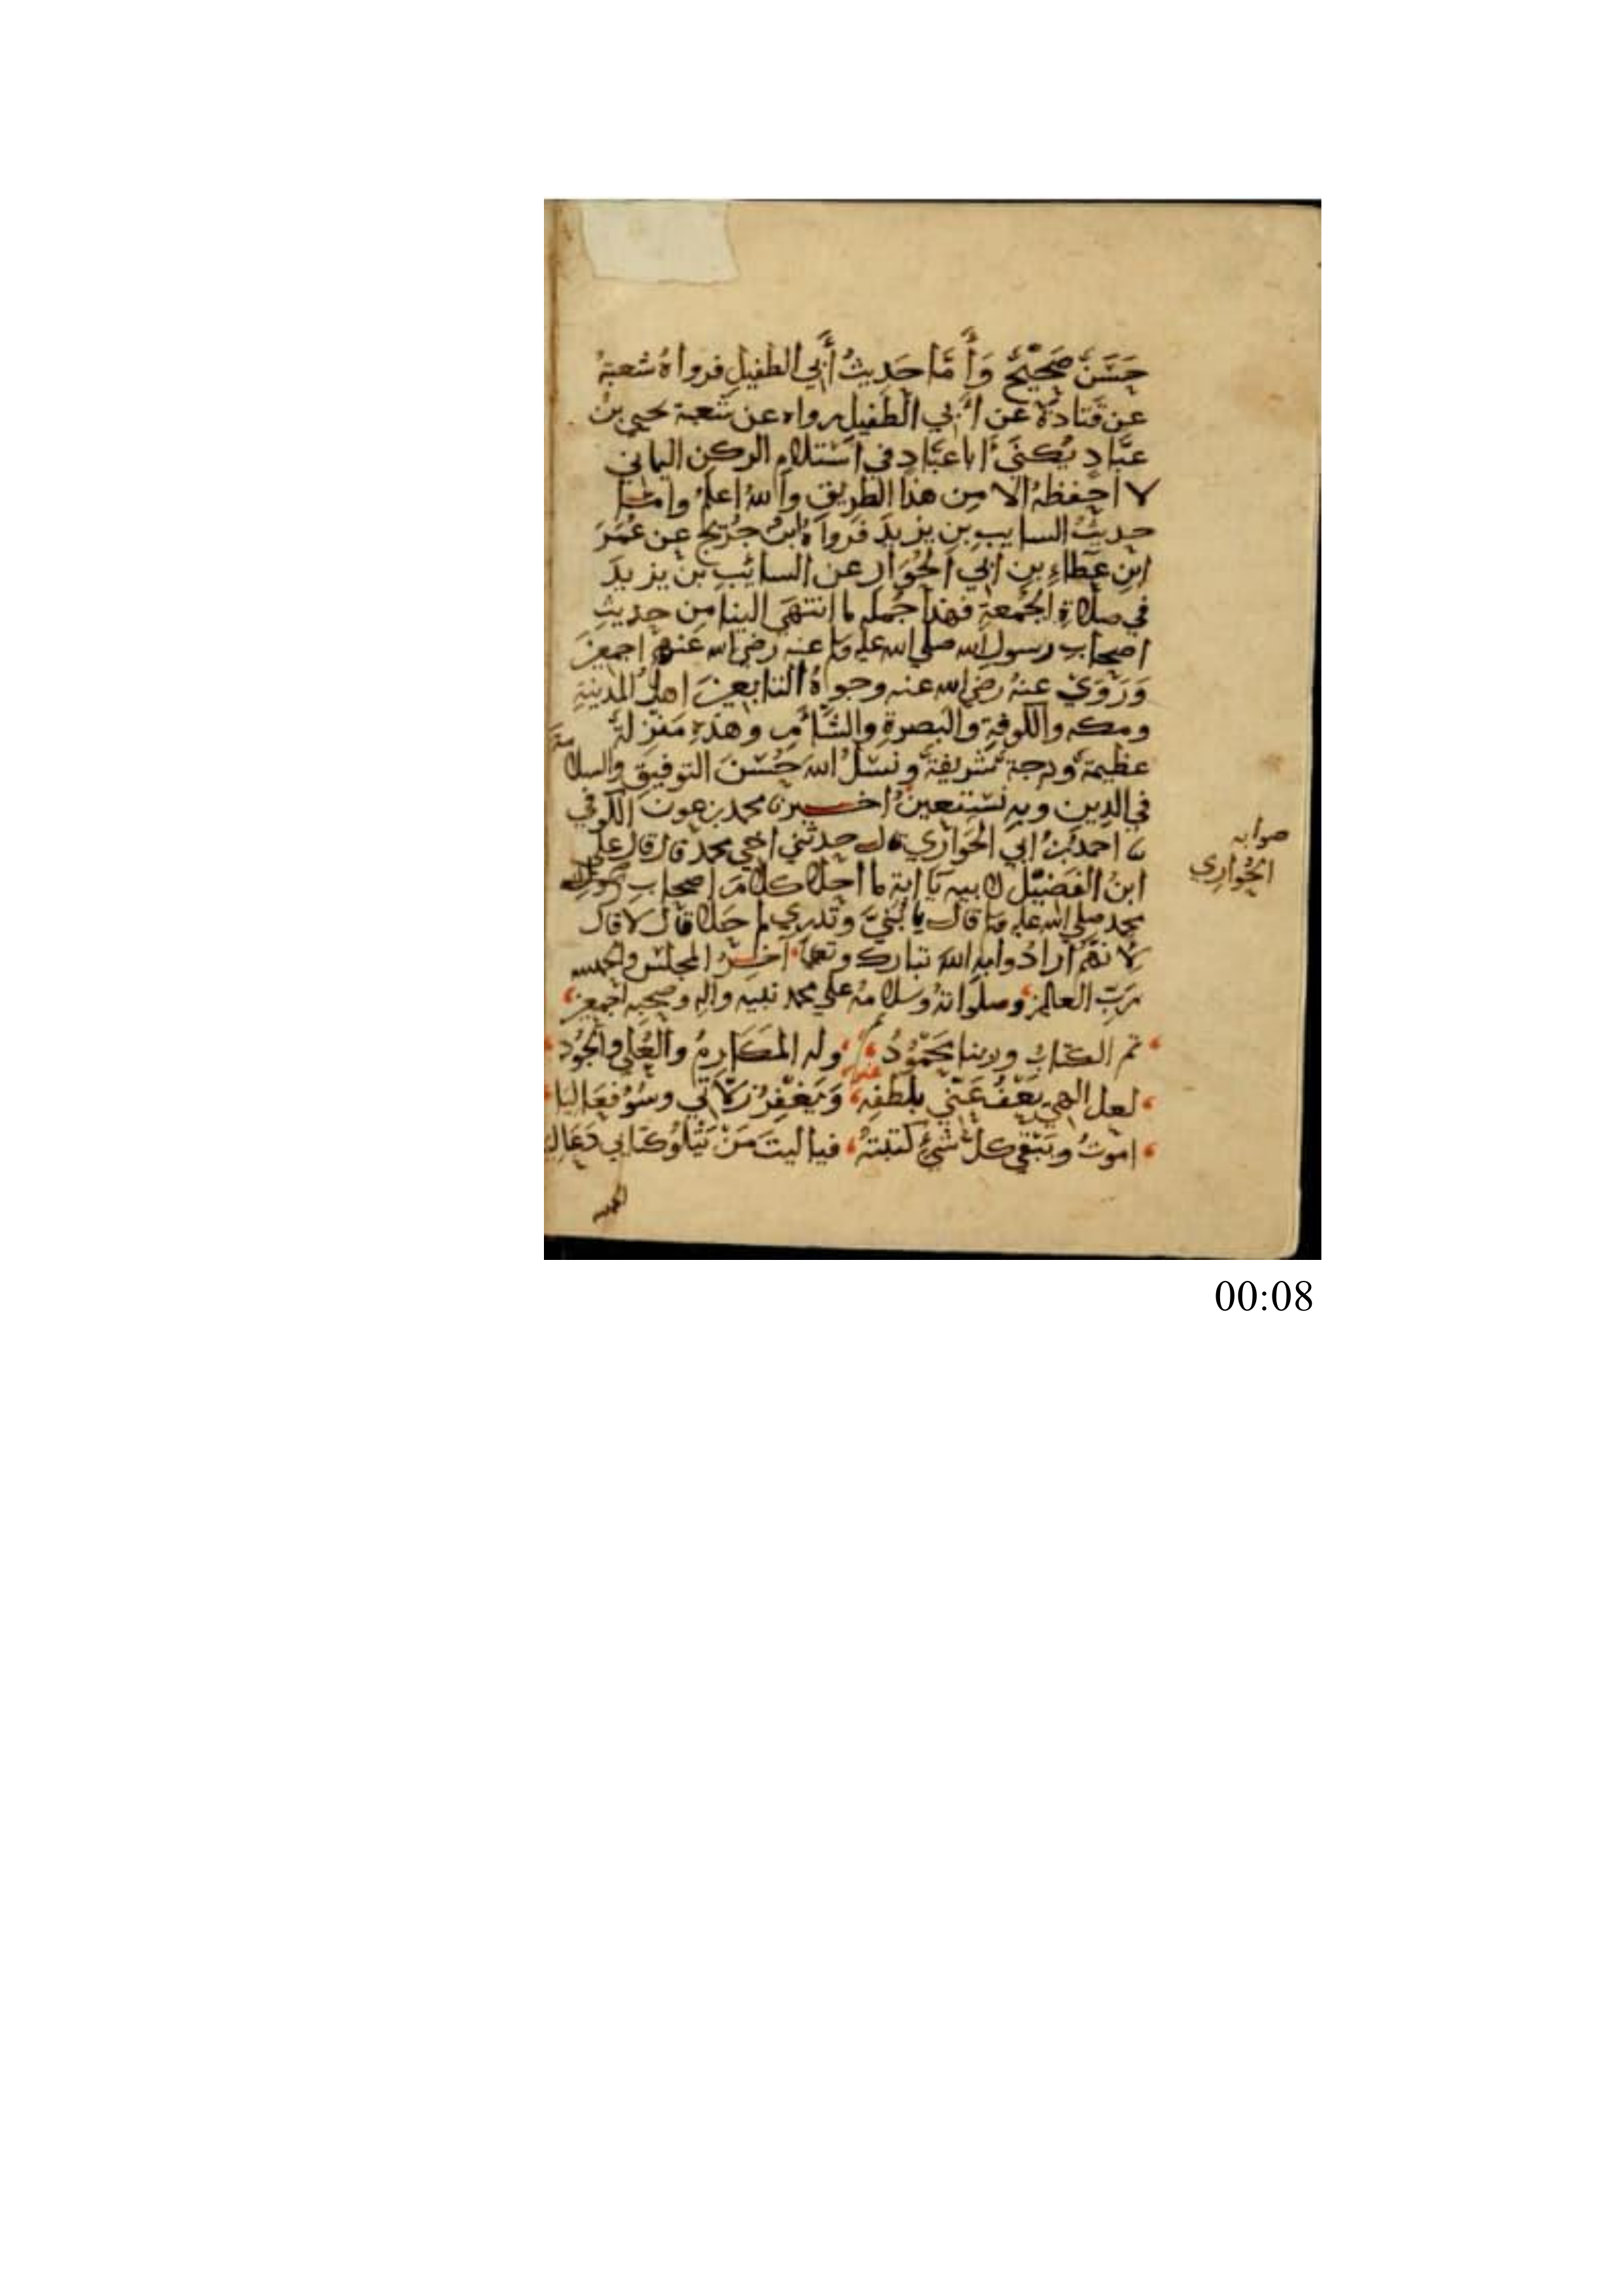 حَسَنٌ صَحِيْحٌ وَأَمَّا حَدِيثُ أَبِي الطفيلِ فرواهُ شعبةُ
عن قَتادةَ عن أَبي الطُفَيلِ رواه عن شعبة يحيى بنُ
عبَّادٍ يُكنَى أبا عبَّادٍ في استلامِ الركنِ اليماني
لا احفظهُ الا مِن هذا الطريقِ واللهُ اعلمُ واما
حديثُ السايبِ بنِ يزيدَ فَرواهُ ابنُ جُرَيجٍ عن عُمَرَ
ابنِ عَطاءِ بنِ ابي الخُوَارِ عن السائبِ بن يزيدَ
في صلاةِ الجُمعةِ فهذا جُمله ما انتَهَى الينا مِن حديثِ
اصحابِ رسولِ الله صلى الله عليه وسلم عنه رضي الله عنهم اجمعينَ
وَرَوَى عنهُ رضي الله عنه وجوهُ التابعينَ اهلُ المدينةِ
ومكه والكوفةِ والبصرةِ والشَّأمِ وهذهِ مَنزلةٌ
عظيمةٌ ودرجةٌ شريفةٌ ونسئلُ اللهَ حُسْنَ التوفيقِ والسلامة
في الدين وبِهِ نستعينُ اخبرنا محمد بن عون الكوفي
نا احمدُ بنُ ابي الحَوَارِي قال حدثني اخي محمد قال قال علي
ابنُ الفُضَيْل لابيه يَا ابةِ ما احلا كلامَ اصحابِ
محمد صلى الله عليه وسلم قال يا بُنَيَّ وتدري لم حَلا قال لا قال
لاَنهُمْ ارادُوا به اللهَ تبارك وتعالى آخرُ المجلس والحمد لله
رَبِّ العالمين وصلواتهُ وسلامهُ على محمد نبيه واله وصحبه اجمعين
تم الكتابُ وربنا مَحمُوْدُ وله المَكَارِمُ والعُلى والجُود
لعل الهي يَعْفُ عَنّي بلطفِهِ وَيَغْفِرُ زلاّتي وسُوْ فِعَاليا
اموتُ ويَبْقى كلُّ شيءٍ كتبتهُ فيا ليتَ مَنْ يَتْلُو كتابي دَعَا ليا
صوابه
الحَوارِي